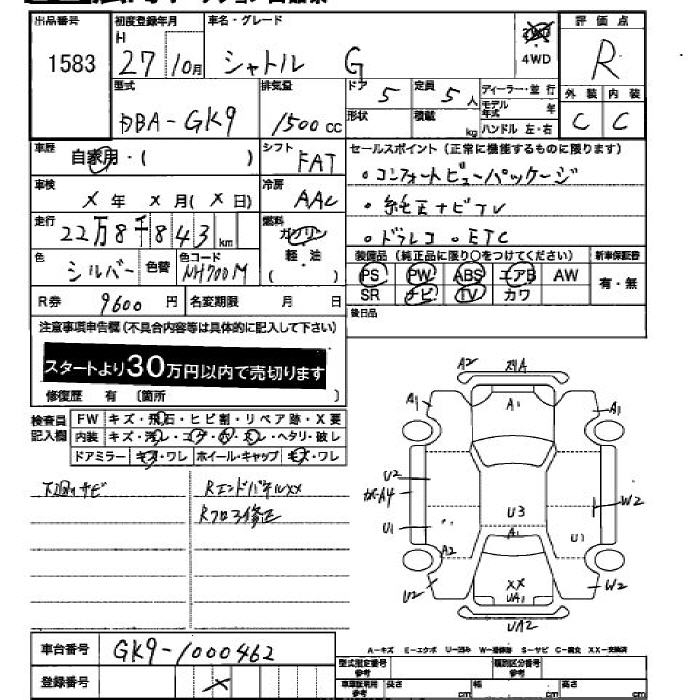 出品番号 1583
初度登録年月 H 27年10月
車名・グレード シャトル G
4WD
評価点 R
外装 C 内装 C
型式 DBA-GK9
排気量 1500cc
ドア 5
定員 5人
形状
積載 kg
ディーラー・並行
モデル年式 年
ハンドル 左・右
車歴 自家用・( )
シフト FAT
車検 X年 X月(X日)
冷房 AAC
走行 22万8千843km
燃料 ガソリン 軽・油 ( )
色 シルバー 色替
色コード NH700M
R券 9600円
名変期限 月 日
セールスポイント(正常に機能するものに限ります)
・コンフォートビューパッケージ
・純正ナビTV
・ドラレコ・ETC
装備品(純正品に限り○をつけてください)
PS PW ABS エアB AW
SR ナビ TV カワ
新車保証書 有・無
後日品
注意事項申告欄(不具合内容等は具体的に記入して下さい)
スタートより30万円以内で売切ります
修復歴 有 〔箇所 〕
検査員記入欄
FW キズ・飛石・ヒビ割・リペア跡・X要
内装 キズ・汚レ・コゲ・穴・スレ・ヘタリ・破レ
ドアミラー キズ・ワレ ホイール・キャップ キズ・ワレ
下回りサビ
RエンドパネルXX
Rフロア修正
A2
A1
A1
A1
U2
U1
A2
U2
U3
A1
W2
U1
W2
XX
UA1
UA2
車台番号 GK9-1000462
登録番号 X
A-キズ E-エクボ U-凹み W-補修跡 S-サビ C-腐食 XX-交換済
型式指定番号 参考
類別区分番号 参考
車車証明用 参考 長さ cm 幅 cm 高さ cm